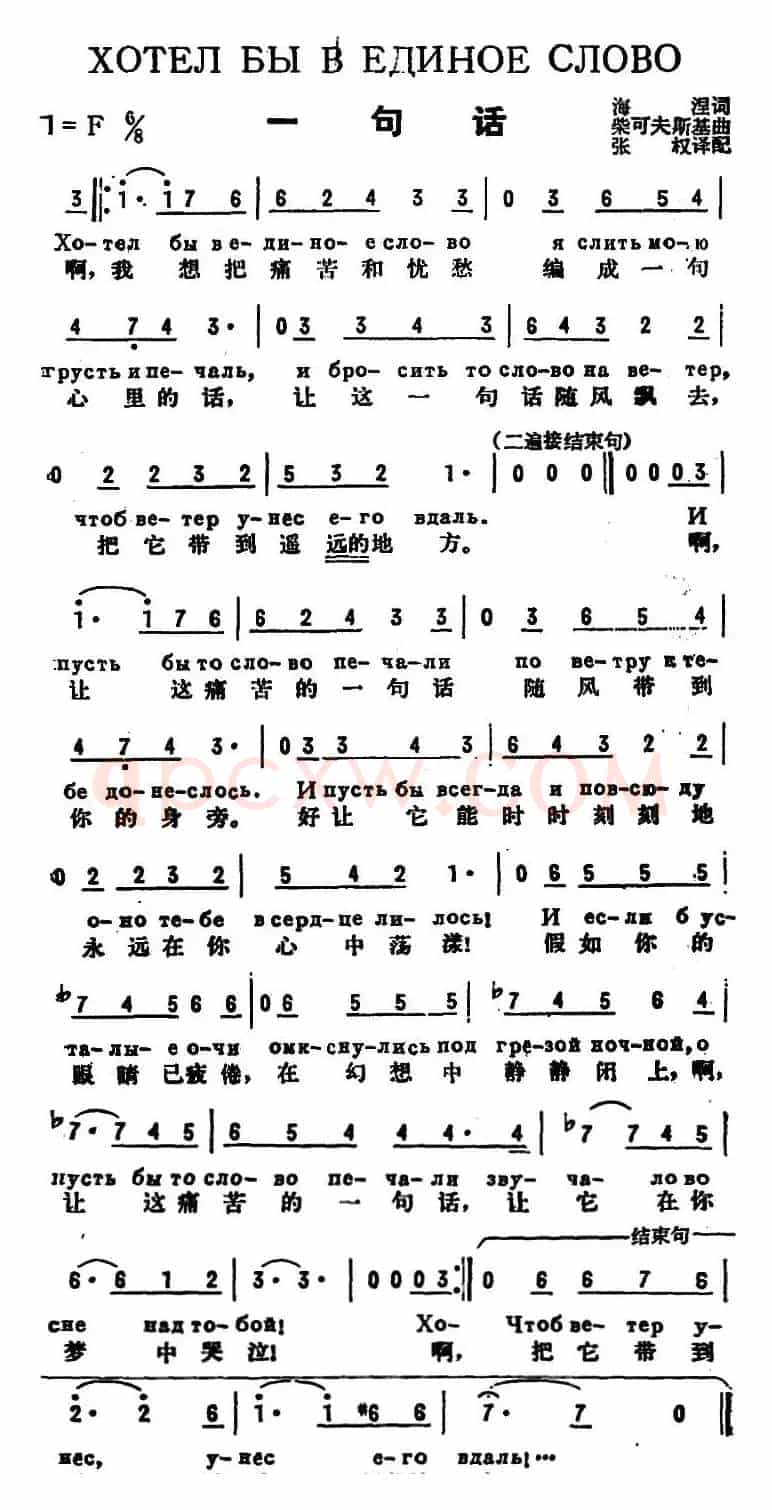 ХОТЕЛ БЫ В ЕДИНОЕ СЛОВО
1=F 6/8
一句话
海涅词
柴可夫斯基曲
张权译配
3 ‖: i· i 7 6 | 6 2 4 3 3 | 0 3 6 5 4 |
Хо-тел бы в е-ди-но-е сло-во я слить мо-ю
啊,我想把痛苦和忧愁编成一句
4 7 4 3· | 0 3 3 4 3 | 6 4 3 2 2 |
грусть и пе-чаль, и бро-сить то сло-во на ве-тер,
心里的话,让这一句话随风飘去,
(二遍接结束句)
0 2 2 3 2 | 5 3 2 1· | 0 0 0 ‖ 0 0 0 3 |
чтоб ве-тер у-нёс е-го вдаль. И
把它带到遥远的地方。 啊,
i· i 7 6 | 6 2 4 3 3 | 0 3 6 5 4 |
пусть бы то сло-во пе-ча-ли по ве-тру к те-
让这痛苦的一句话随风带到
4 7 4 3· | 0 3 3 4 3 | 6 4 3 2 2 |
бе до-не-слось. И пусть бы всег-да и пов-сю-ду
你的身旁。好让它能时时刻刻地
0 2 2 3 2 | 5 4 2 1· | 0 6 5 5 5 |
о-но те-бе в серд-це ли-лось! И ес-ли б ус-
永远在你心中荡漾! 假如你的
♭7 4 5 6 6 6 | 0 6 5 5 5 | ♭7 4 5 6 4 |
та-лы-е о-чи сомк-сну-лись под грё-зой ноч-ной, о
眼睛已疲倦,在幻想中静静闭上,啊,
♭7· 7 4 5 | 6 5 4 4 4· 4 | ♭7 7 4 5 |
пусть бы то сло-во пе-ча-ли зву-ча-ло во
让这痛苦的一句话,让它在你
结束句
6· 6 1 2 | 3· 3· | 0 0 0 3 :‖ 0 6 6 7 6 |
сне над то-бой! Хо- Чтоб ве-тер у-
梦中哭泣! 啊, 把它带到
2· 2 6 | i· i #6 6 | 7· 7 0 ‖
нёс, у-нёс е-го вдаль!…
qpcxw.com